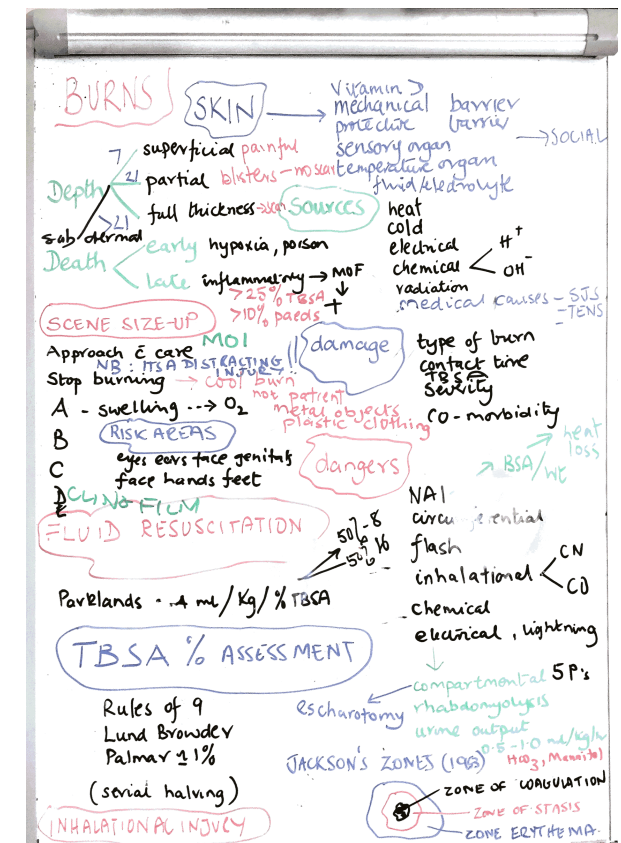 BURNS
SKIN
Vitamin D
mechanical barrier
protective barrier
sensory organ
temperature organ
fluid/electrolyte
→ SOCIAL
Depth
7 superficial painful
21 partial blisters - no scar
>21 full thickness → scar
sub dermal
Death
early hypoxia, poison
late inflammatory → MOF
>25% TBSA
>10% paeds
Sources
heat
cold
electrical
chemical < H+ OH-
radiation
medical causes - SJS
- TENS
SCENE SIZE-UP
MOI
Approach c̄ care
NB: ITS A DISTRACTING INJURY!!
Stop burning → cool burn
not patient
metal objects
plastic clothing
A - swelling --→ O2
B
C
D
E
CLING FILM
RISK AREAS
eyes ears face genitals
face hands feet
damage
type of burn
contact time
TBSA
severity
CO-morbidity
dangers
→ BSA/wt → heat loss
NAI
flash
inhalational < CN CO
chemical
electrical, lightning
compartmental 5P's
rhabdomyolysis
urine output
0.5-1.0 ml/kg/hr
HCO3, Mannitol
escharotomy
FLUID RESUSCITATION
Parklands - 4 ml/kg/% TBSA
50% - 8
50% 16
TBSA % ASSESSMENT
Rules of 9
Lund Browder
Palmar 1%
(serial halving)
INHALATIONAL INJURY
JACKSON'S ZONES (1963)
ZONE OF COAGULATION
ZONE OF STASIS
ZONE ERYTHEMA.